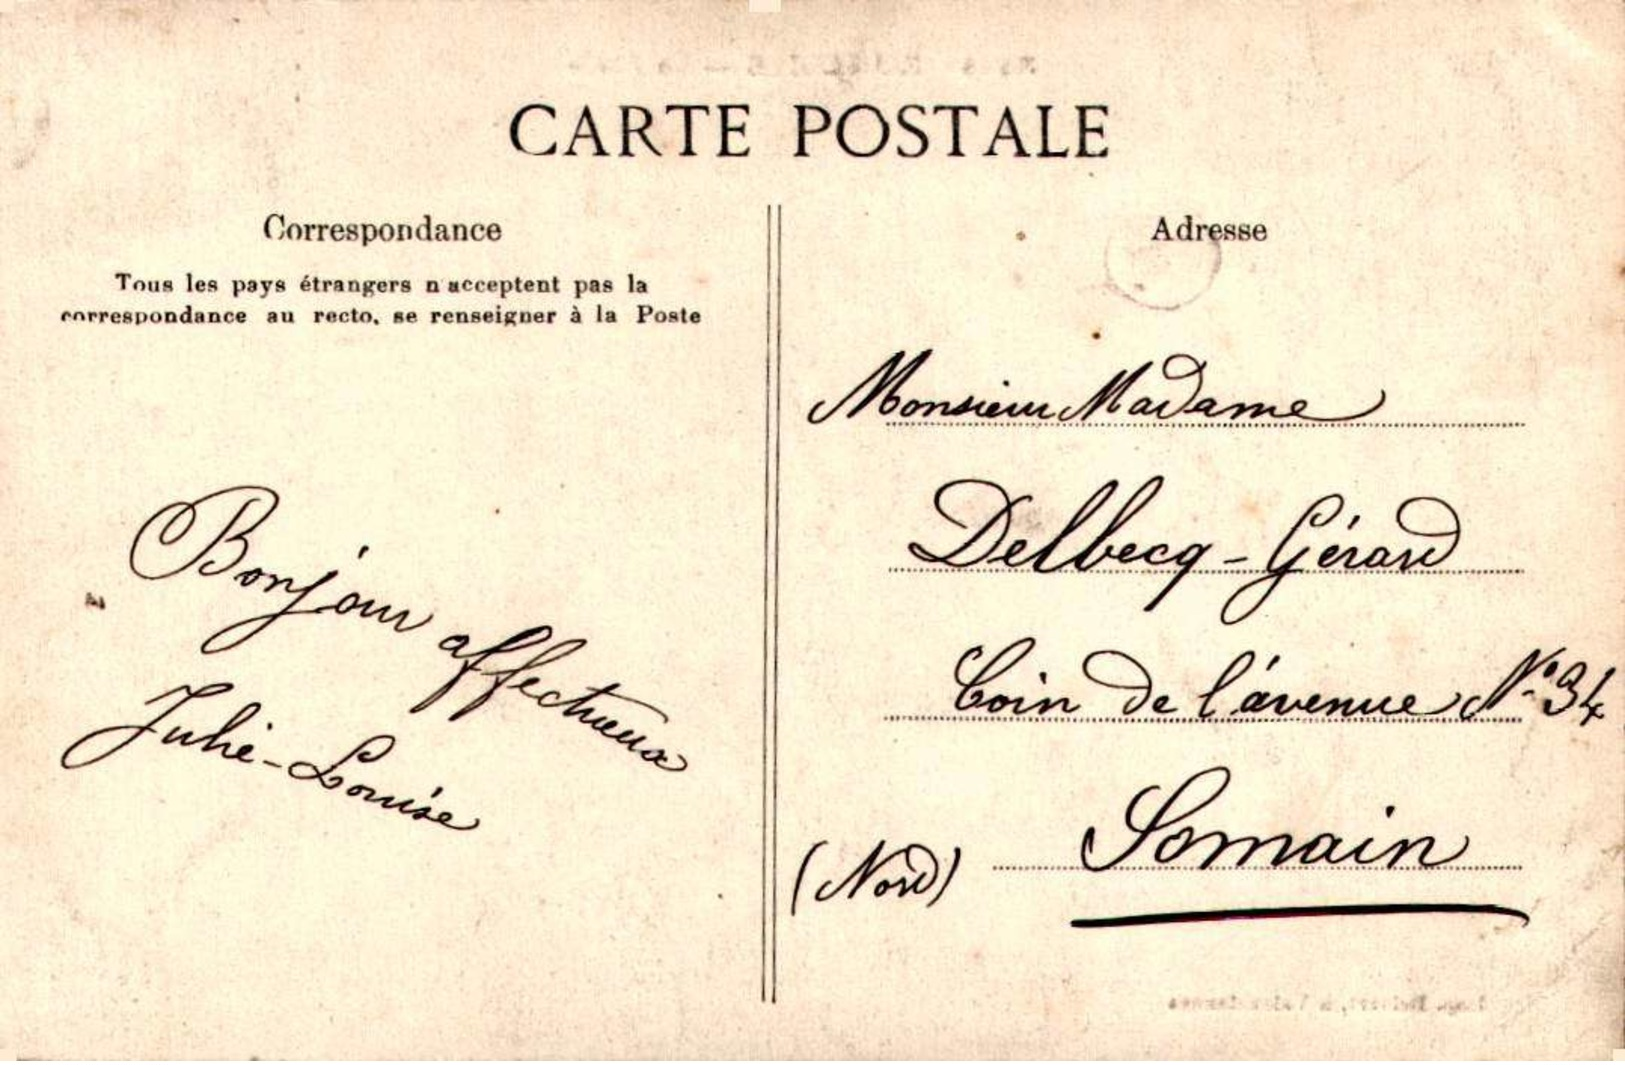 CARTE POSTALE
Correspondance
Tous les pays étrangers n'acceptent pas la
correspondance au recto, se renseigner à la Poste
Bonjour affectueux
Julie-Louise
Adresse
Monsieur Madame
Delbecq-Gérard
Coin de l'avenue N° 34
Somain
(Nord)